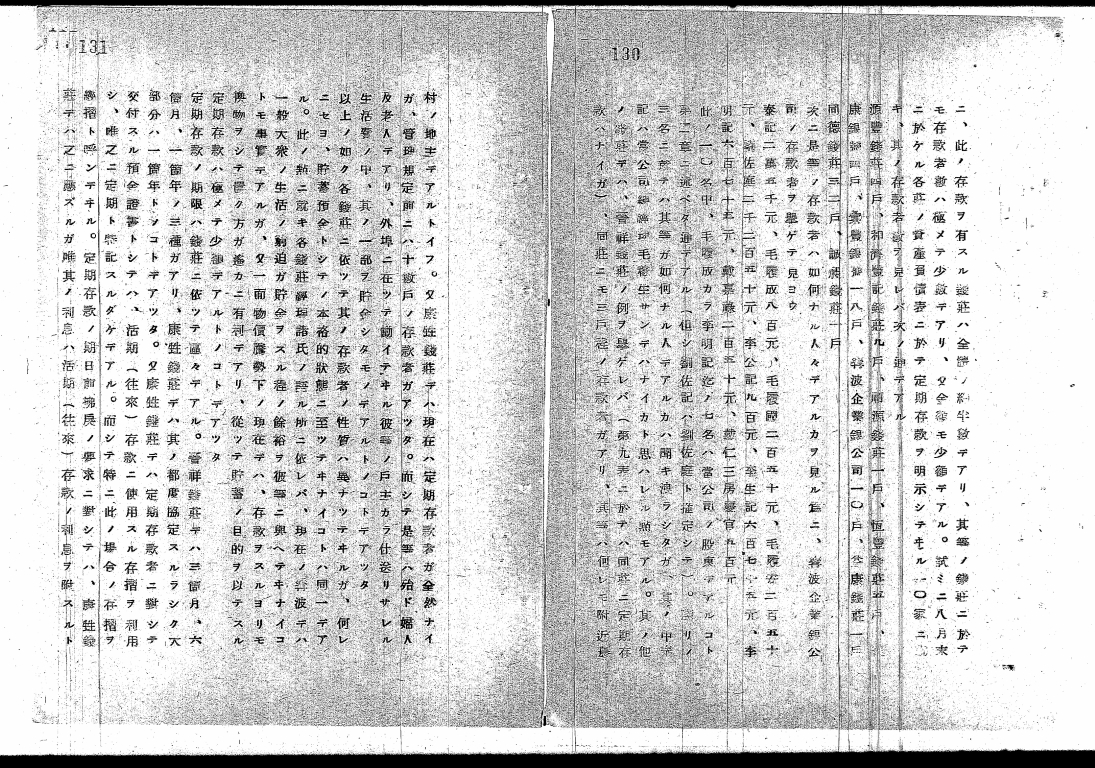 130
ニ、此ノ存款ヲ有スル錢莊ハ全體ノ約半數デアリ、其等ノ錢莊ニ於テ
モ存款者數ハ極メテ少數デアリ、又金額モ少額デアル。試ミニ八月末
ニ於ケル各錢莊ノ資產負債表ニ於テ定期存款ヲ明示シテヰル一〇家ニ
キ、其ノ存款者數ヲ見レバ次ノ通デアル
源豐錢莊四戶、和濟豐記錢莊九戶、順源錢莊一戶、恆豐錢莊五戶、
康錢莊四戶、豐錢莊一八戶、寧波企業銀公司一〇戶、康錢莊一戶
同德錢莊三二戶、誠義錢莊一戶
次ニ是等ノ存款者ハ如何ナル人々デアルカヲ見ル爲ニ、寧波企業銀公
司ノ存款者ヲ擧ゲテ見ヨウ
泰記二萬五千元、毛履成八百元、毛履國二百五十元、毛履宏二百五十
元、劉佐庭二千二百五十元、李公記九百元、至生記六百七十五元、李
明記六百七十五元、戴嘉祿二百五十元、戴仁三房慶官五百元
此ノ一〇名中、毛履成カラ李明記迄ノ七名ハ當公司ノ股東デアルコト
第二章ニ述ベタ通デアル(但シ劉佐記ハ劉佐庭ト推定シテ)。殘リノ
三名ニ就テハ其等ガ如何ナル人デアルカハ聞キ洩ラシタガ、其ノ中泰
記ハ當公司經理司毛稼生サンデハナイカト思ハレル點モアル。其ノ他
ノ錢莊デハ、晉祥錢莊ノ例ヲ擧ゲレバ(第九表ニ於テハ同莊ニ定期存
款ハナイガ)、同莊ニモ三戶程ノ存款者ガアリ、其等ハ何レモ附近農
131
村ノ地主デアルトイフ。又慶甡錢莊デハ現在ハ定期存款者ガ全然ナイ
ガ、管理規定前ニハ十數戶ノ存款者ガアツタ。而シテ是等ハ殆ド婦人
及老人デアリ、外埠ニ在ツテ働イテヰル彼等ノ戶主カラ仕送リサレル
生活費ノ中、其ノ一部ヲ貯金シタモノデアルトノコトデアツタ
以上ノ如ク各錢莊ニ依ツテ其ノ存款者ノ性質ハ異ナツテヰルガ、何レ
ニセヨ、貯蓄預金トシテノ本格的狀態ニ至ツテヰナイコトハ同一デア
ル。此ノ點ニ就キ各錢莊經理諸氏ノ語ル所ニ依レバ、現在ノ寧波デハ
一般大衆ノ生活ノ窮迫ガ貯金ヲスル程ノ餘裕ヲ彼等ニ與ヘテヰナイコ
トモ事實デアルガ、又一面物價騰勢下ノ現在デハ、存款ヲスルヨリモ
換物ヲシテ置ク方ガ遙カニ有利デアリ、從ツテ貯蓄ノ目的ヲ以テスル
定期存款ハ極メテ少額デアルトノコトデアツタ
定期存款ノ期限ハ錢莊ニ依ツテ區々デアル。晉祥錢莊デハ三箇月、六
箇月、一箇年ノ三種ガアリ、康甡錢莊デハ其ノ都度協定スルラシク大
部分ハ一箇年トノコトデアツタ。又慶甡錢莊デハ定期存款者ニ對シテ
交付スル預金證書トシテハ、活期(往來)存款ニ使用スル存摺ヲ利用
シ、唯之ニ定期ト特記スルダケデアル。而シテ特ニ此ノ場合ノ存摺ヲ
摺ト呼ンデヰル。定期存款ノ期日前拂戾ノ要求ニ對シテハ、慶甡錢
莊デハ之ニ應ズルガ唯其ノ利息ハ活期(往來)存款ノ利息ヲ附スルト